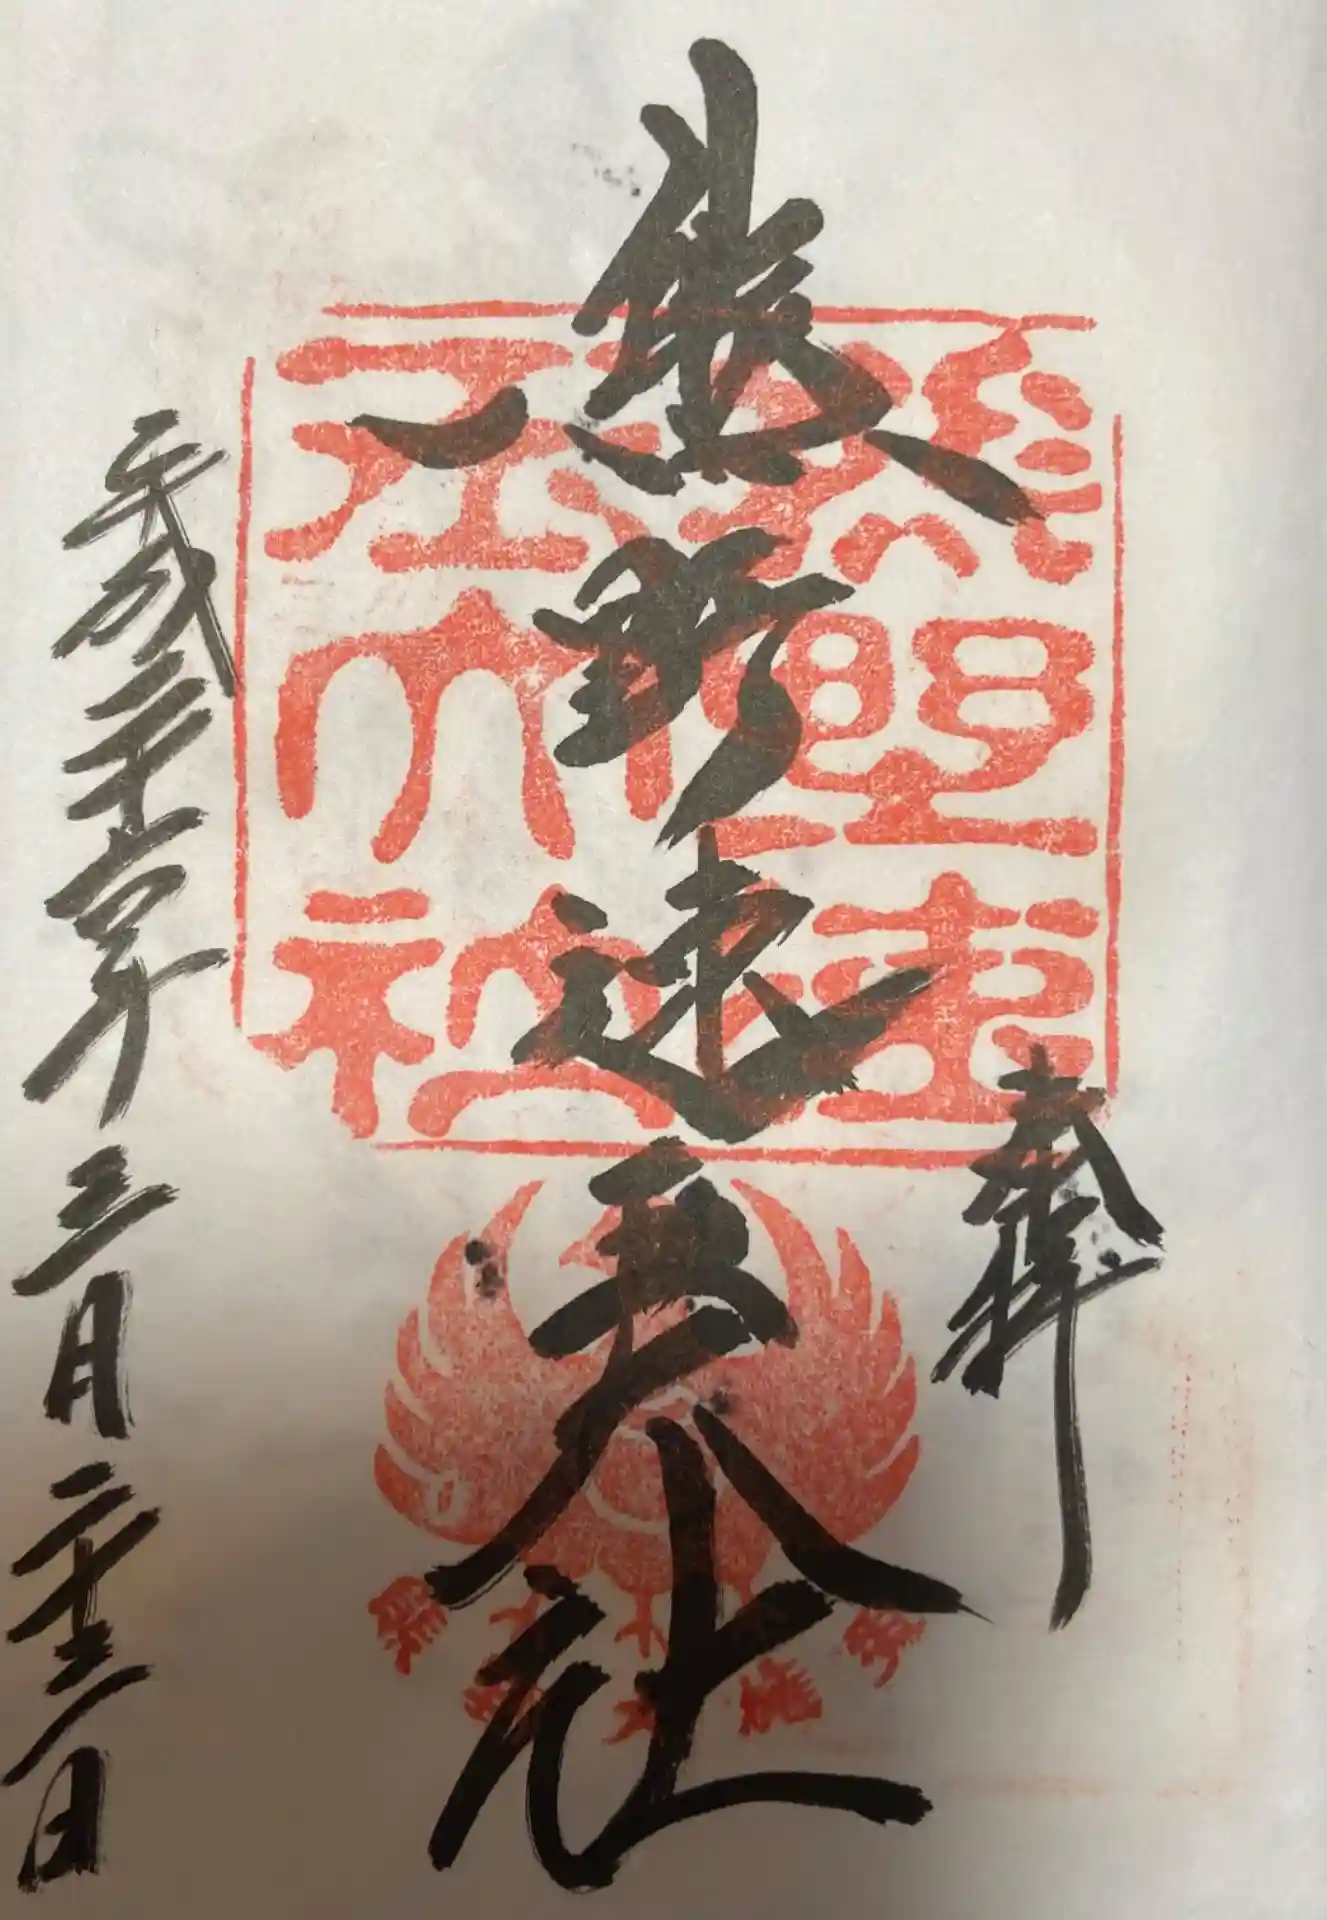 奉拝
熊野速玉大社
熊野速玉大社
平成三十年三月二十三日